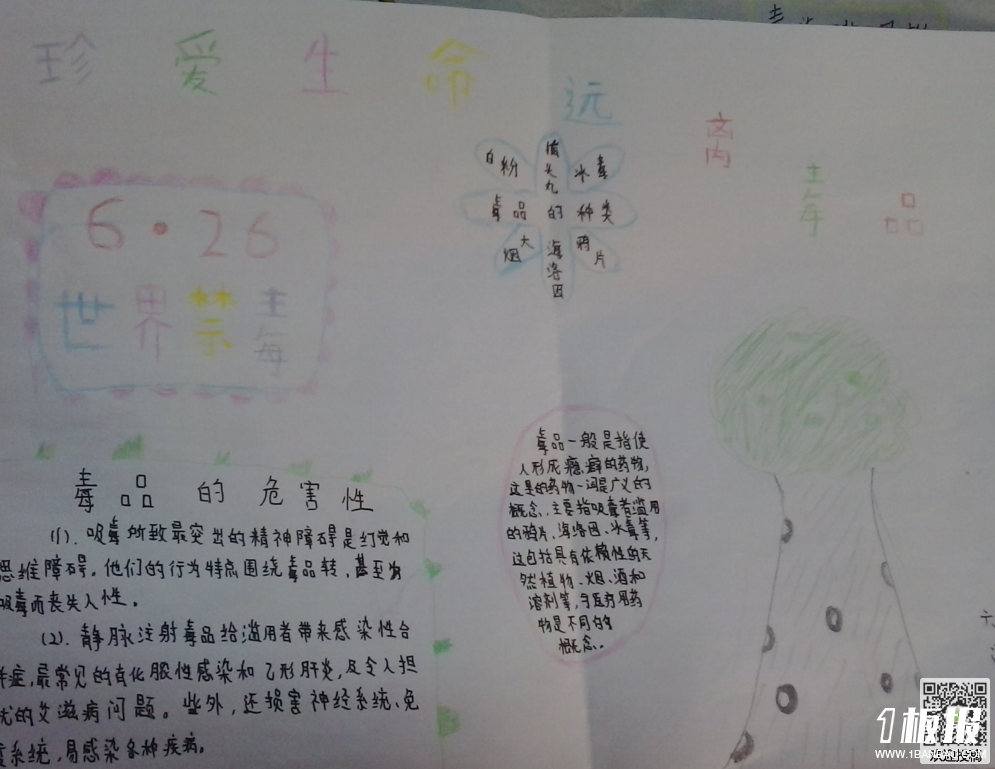 珍爱生命远离毒品
6·26
世界禁毒
白粉
摇头丸
冰毒
毒品的种类
大烟
海洛因
鸦片
毒品的危害性
(1).吸毒所致最突出的精神障碍是幻觉和
思维障碍。他们的行为特点围绕毒品转,甚至为
吸毒而丧失人性。
(2).静脉注射毒品给滥用者带来感染性合
并症,最常见的有化脓性感染和乙形肝炎,及令人担
忧的艾滋病问题。些外,还损害神经系统、免
疫系统,易感染各种疾病。
毒品一般是指使
人形成瘾癖的药物,
这里的药物一词是广义的
概念,主要指吸毒者滥用
的鸦片、海洛因、冰毒等,
这包括具有依赖性的天
然植物、烟、酒和
溶剂等,与医疗用药
物是不同的
概念。
1板报
WWW.1BANBAO.COM
欢迎投稿